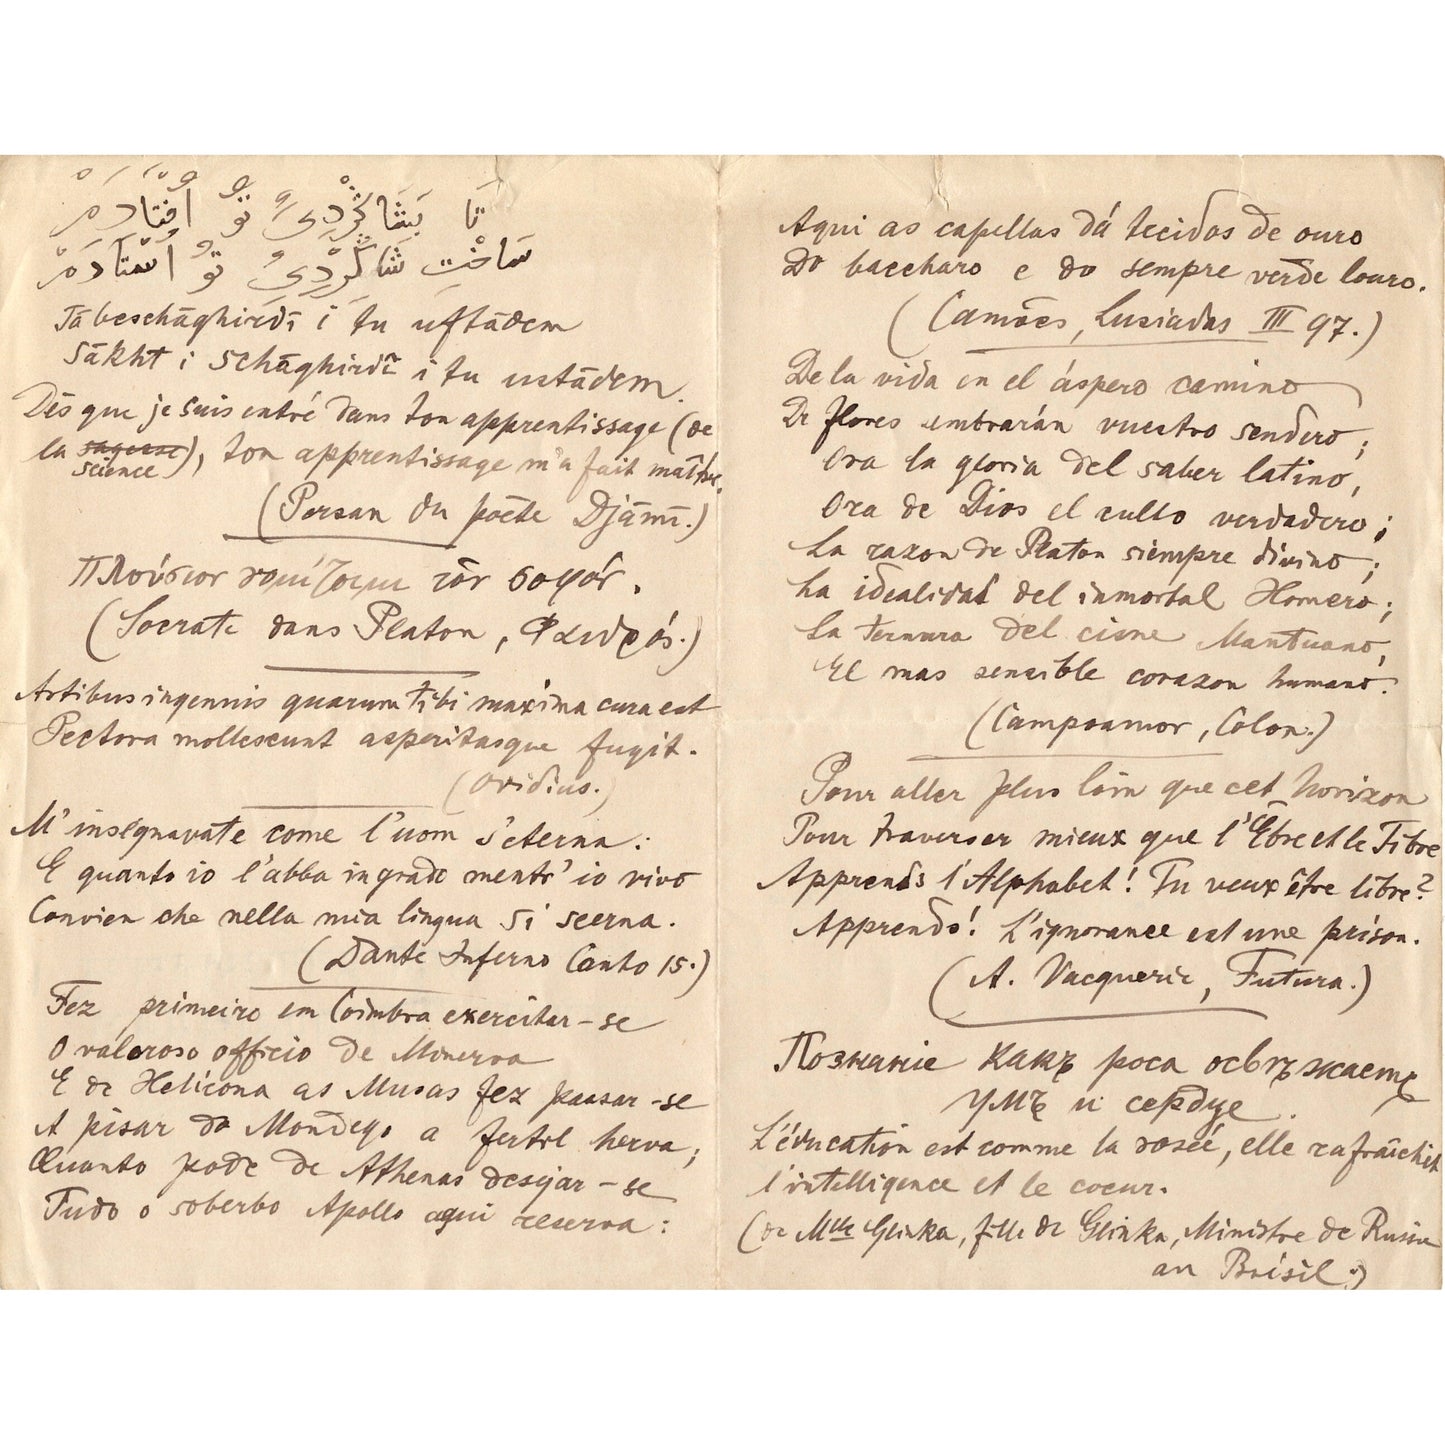 تَا بَشَاگِرْدِیِ تُو اُفْتَادَمْ
سَاخْتْ شَاگِرْدِیِ تُو اُسْتَادَمْ
Tā beschāghirdī i tu uftādem
Sākht i schāghirdī i tu ustādem.
Dès que je suis entré dans ton apprentissage (de
la sagesse science), ton apprentissage m'a fait maître.
(Persan du poète Djāmī.)
Πλούσιον νομίζοιμι τὸν σοφόν.
(Socrate dans Platon, Φαιδρός.)
Artibus ingenuis quarum tibi maxima cura est
Pectora mollescunt asperitasque fugit.
(Ovidius.)
M'insegnavate come l'uom s'eterna:
E quanto io l'abba in grado mentr' io vivo
Convien che nella mia lingua si scerna.
(Dante Inferno Canto 15.)
Fez primeiro em Coimbra exercitar-se
O valeroso officio de Minerva
E de Helicona as Musas fez passar-se
A pisar do Mondego a fertil herva;
Quanto pode de Athenas desejar-se
Tudo o soberbo Apollo aqui reserva:
Aqui as capellas dá tecidas de ouro
Do baccharo e do sempre verde louro.
(Camões, Lusiadas III 97.)
De la vida en el áspero camino
De flores sembrarán vuestro sendero;
Ora la gloria del saber latino,
Ora de Dios el culto verdadero;
La razon de Platon siempre divino;
La idealidad del inmortal Homero;
La ternura del cisne Mantuano,
El mas sensible corazon humano.
(Campoamor, Colon.)
Pour aller plus loin que cet horizon
Pour traverser mieux que l'Ebre et le Tibre
Apprends l'Alphabet! Tu veux être libre?
Apprends! L'ignorance est une prison.
(A. Vacquerie, Futura.)
Познаніе какъ роса освѣжаетъ
умъ и сердце.
L'éducation est comme la rosée, elle rafraîchit
l'intelligence et le coeur.
(de Mlle Glinka, fille de Glinka, Ministre de Russie
au Brésil.)